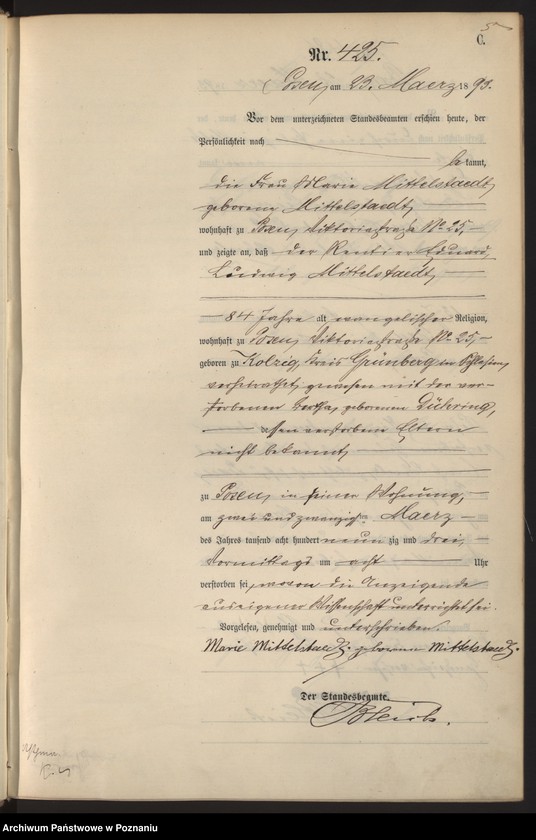 C.
Nr. 425.
Posen, am 23. Maerz 1893.
Vor dem unterzeichneten Standesbeamten erschien heute, der
Persönlichkeit nach
bekannt,
die Frau Marie Mittelstaedt,
geborene Mittelstaedt,
wohnhaft zu Posen, Viktoriastraße No 25,
und zeigte an, daß der Rentier Eduard
Ludwig Mittelstaedt,
84 Jahre alt, evangelischer Religion,
wohnhaft zu Posen, Viktoriastraße No 25,
geboren zu Kolzig, Kreis Grünberg in Schlesien,
verheirathet gewesen mit der ver-
storbenen Bertha, geborenen Dühring,
dessen verstorbene Eltern
nicht bekannt,
zu Posen, in seiner Wohnung,
am zwei und zwanzigsten Maerz
des Jahres tausend acht hundert neunzig und drei,
Vormittags um acht Uhr
verstorben sei, wovon die Anzeigende
aus eigener Wissenschaft unterrichtet sei.
Vorgelesen, genehmigt und unterschrieben.
Marie Mittelstaedt geborene Mittelstaedt.
Der Standesbeamte.
Archiwum Państwowe w Poznaniu